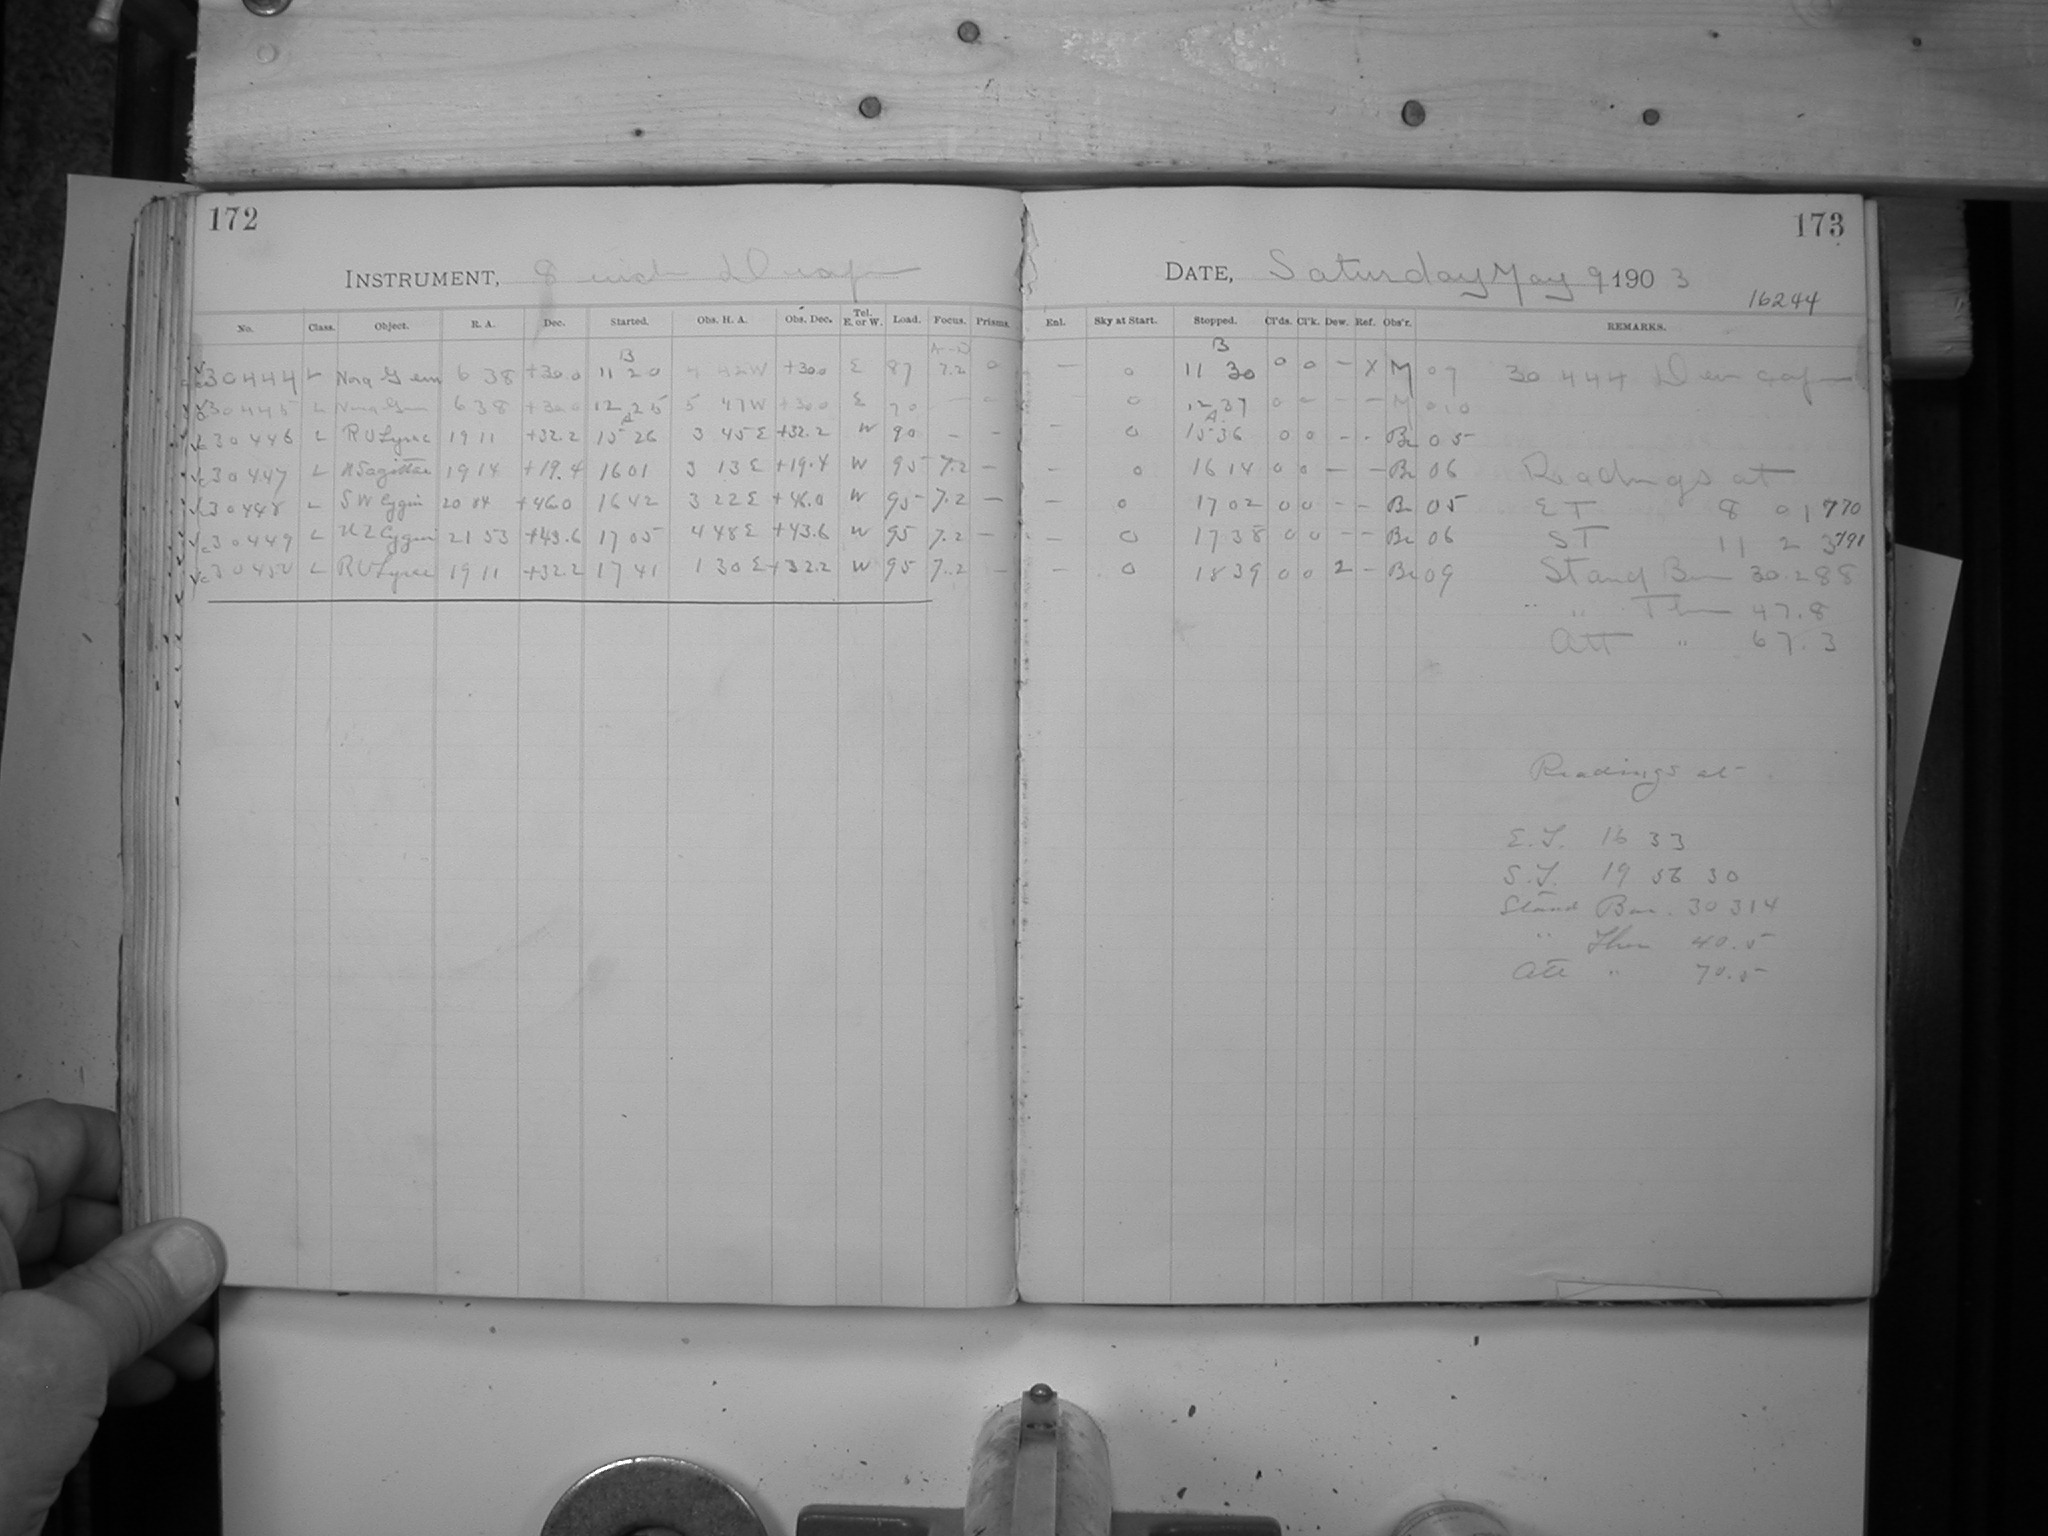 172
INSTRUMENT, 8 inch Draper
No. Class. Object. R. A. Dec. Started. Obs. H. A. Obs. Dec. Tel. E. or W. Load. Focus. Prisms.
B A-D
30444 L Nova Gem 6 38 +30.0 11 20 4 42W +30.0 E 87 7.2 0
30445 L Nova Gem 6 38 +30.0 12 25 5 47W +30.0 E 90 — —
A
30446 L RU Lyrae 19 11 +32.2 15 26 3 45 E +32.2 W 90 – –
30447 L Sagittae 19 14 +19.4 16 01 3 13 E +19.4 W 95 7.2 —
30448 L SW Cygni 20 04 +46.0 16 42 3 22 E +46.0 W 95 7.2 —
30449 L Cygni 21 53 +43.6 17 05 4 48 E +43.6 W 95 7.2 —
30450 L RU Lyrae 19 11 +32.2 17 41 1 30 E +32.2 W 95 7.2 —
173
DATE, Saturday May 9 1903
16244
Enl. Sky at Start. Stopped. Cl'ds. Cl'k. Dew. Ref. Obs'r. REMARKS.
B
— 0 11 30 0 0 – X M 07 30444 Dew cap
0 12 37 0 – – – M 010
A
– 0 15 36 0 0 – - Be 05
— 0 16 14 0 0 — – Be 06 Readings at
— 0 17 02 0 0 – – Be 05 ET 8 01 770
— 0 17 38 0 0 – – Be 06 ST 11 2 3 791
— 0 18 39 0 0 2 – Be 09 Stand Bar 30.288
" Ther 47.8
Att " 67.3
Readings at
E.T. 16 33
S.T. 19 56 30
Stand Bar. 30 314
" Ther 40.5
Att " 70.5